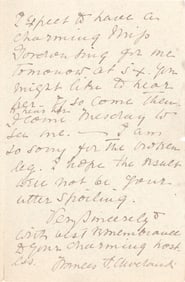 expect to have a
charming Miss
Gordon sing for me
tomorrow at 5. You
might like to hear
her. If so come then
& hear her
I come Tuesday to
see me. — I am
so sorry for the broken
leg. I hope the
will not be your
utter spoiling.
Very Sincerely
with best remembrance
to your charming host
ess.
Frances F. Cleveland